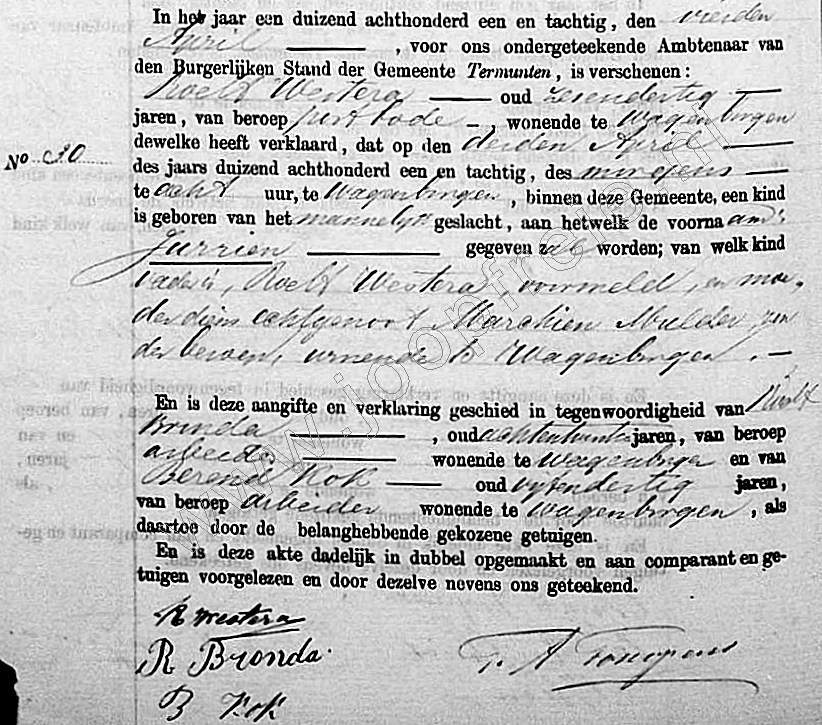 In het jaar een duizend achthonderd een en tachtig, den vierden
April, voor ons ondergeteekende Ambtenaar van
den Burgerlijken Stand der Gemeente Termunten, is verschenen:
Roelf Westera oud zesendertig
jaren, van beroep postbode, wonende te Wagenborgen
dewelke heeft verklaard, dat op den derden April
des jaars duizend achthonderd een en tachtig, des morgens
No 30
te acht uur, te Wagenborgen, binnen deze Gemeente, een kind
is geboren van het mannelijk geslacht, aan hetwelk de voornaam:
Jurrien gegeven zal worden; van welk kind
vader is, Roelf Westera, voormeld, en moe-
der diens echtgenoot Marchien Mulder zon
der beroep, wonende te Wagenborgen.
En is deze aangifte en verklaring geschied in tegenwoordigheid van Roelf
Bronda, oud jaren, van beroep
arbeider wonende te Wagenborgen en van
Berend Kok oud vijfendertig jaren,
van beroep arbeider wonende te Wagenborgen, als
daartoe door de belanghebbende gekozene getuigen.
En is deze akte dadelijk in dubbel opgemaakt en aan comparant en ge-
tuigen voorgelezen en door dezelve nevens ons geteekend.
R Westera
R Bronda.
B Kok
www.joopfreje.nl